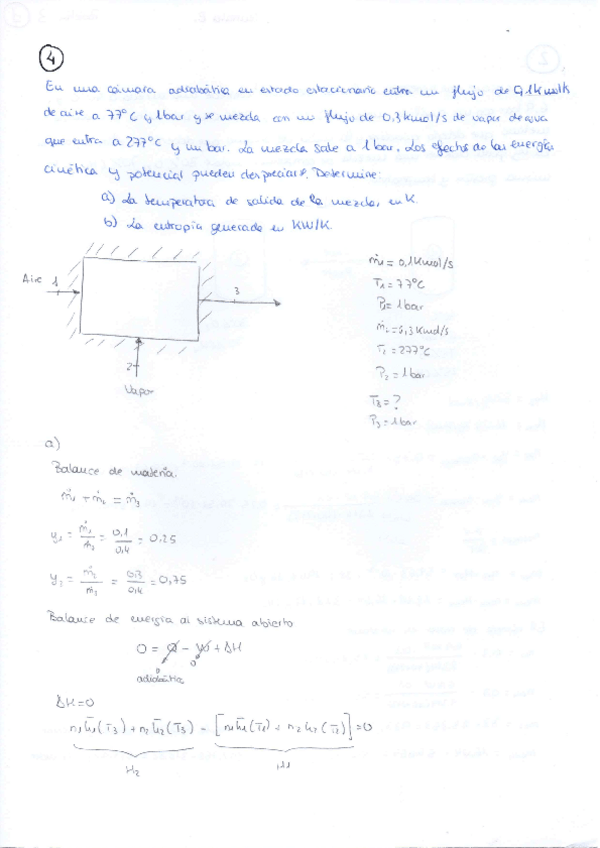 4
En una cámara adiabática en estado estacionario entra un flujo de 0,1kmol/s
de aire a 77°C y 1bar y se mezcla con un flujo de 0,3kmol/s de vapor de agua
que entra a 277°C y un bar. La mezcla sale a 1bar. Los efectos de las energía
cinética y potencial pueden despreciarse. Determine:
a) La temperatura de salida de la mezcla en K.
b) La entropía generada en KW/K.
Aire 1
3
2
Vapor
ṁ1 = 0,1Kmol/s
T1 = 77°C
P1 = 1bar
ṁ2 = 0,3Kmol/s
T2 = 277°C
P2 = 1bar
T3 = ?
P3 = 1bar
a)
Balance de materia.
ṁ1 + ṁ2 = ṁ3
y1 = ṁ1/ṁ3 = 0,1/0,4 = 0,25
y2 = ṁ2/ṁ3 = 0,3/0,4 = 0,75
Balance de energía al sistema abierto
0 = Q - W + ΔH
0 0
adiabática
ΔH=0
n1h̄1(T3) + n2h̄2(T3) - [n1h̄1(T1) + n2h2(T2)] = 0
H2 H1